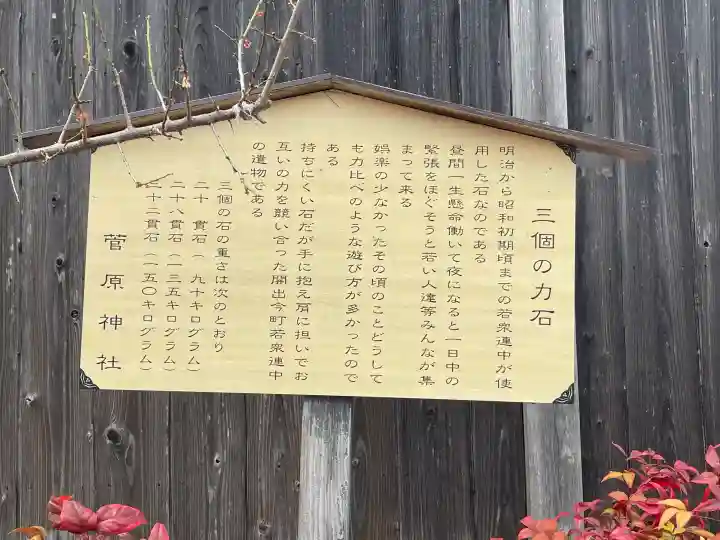 三個の力石
明治から昭和初期頃までの若衆連中が使
用した石なのである
昼間一生懸命働いて夜になると一日中の
緊張をほぐそうと若い人達等みんなが集
まって来る
娯楽の少なかったその頃のことどうして
も力比べのような遊び方が多かったので
ある
持ちにくい石だが手に抱え肩に担いでお
互いの力を競い合った開出今町若衆連中
の遺物である
三個の石の重さは次のとおり
二十　貫石（　九十キログラム）
二十八貫石（一三五キログラム）
三十二貫石（一五〇キログラム）
菅原神社